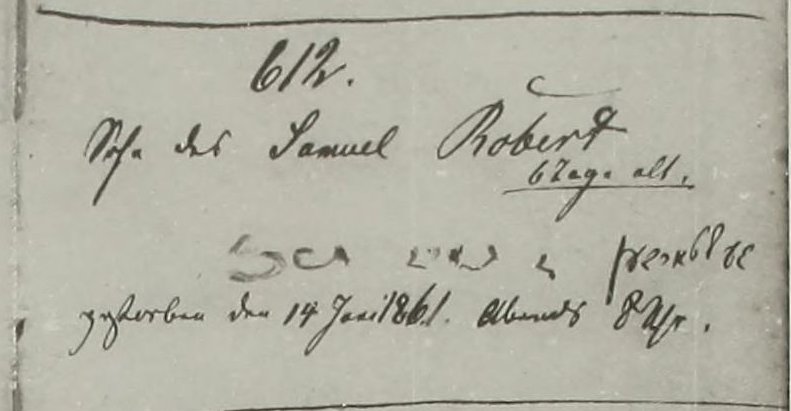 612.
Sohn des Samuel Robert
6 Tage alt.
gestorben den 14 Juni 1861. Abends 8 Uhr.